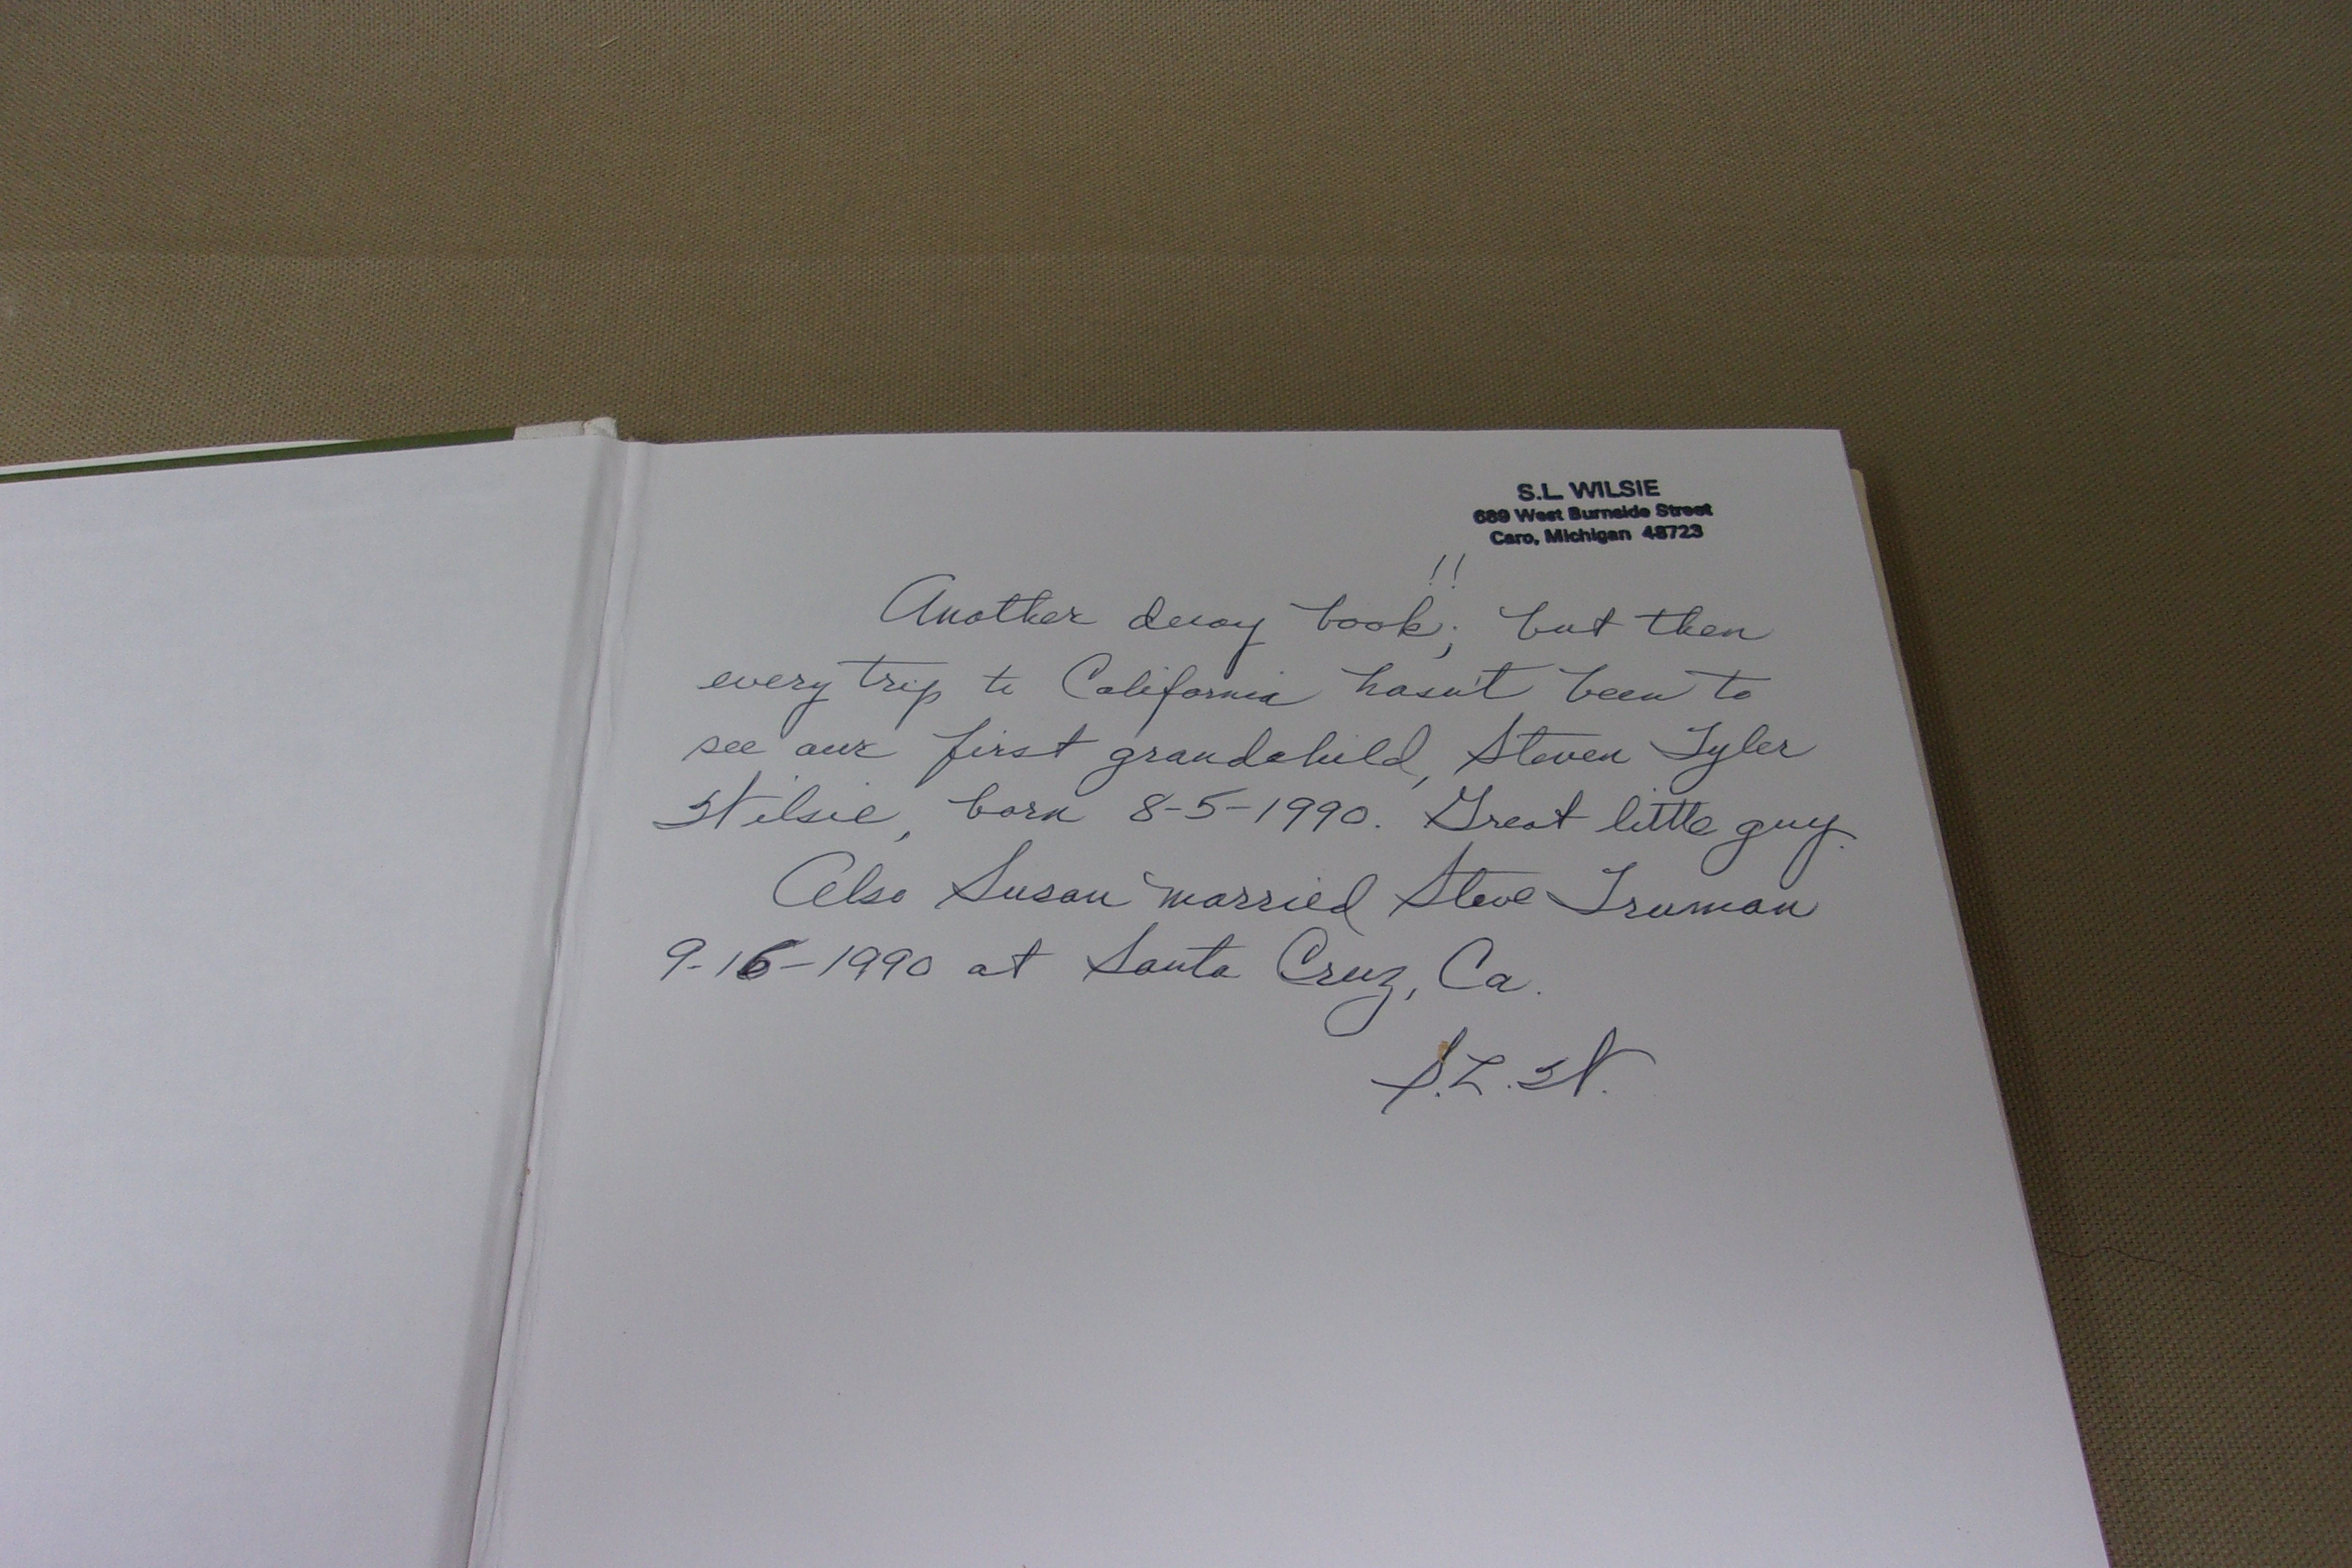 S.L. WILSIE
689 West Burnside Street
Caro, Michigan 48723
Another decoy book!!; but then
every trip to California hasn't been to
see our first grandchild, Steven Tyler
Wilsie, born 8-5-1990. Great little guy.
Also Susan married Steve Truman
9-16-1990 at Santa Cruz, Ca.
S.L.W.